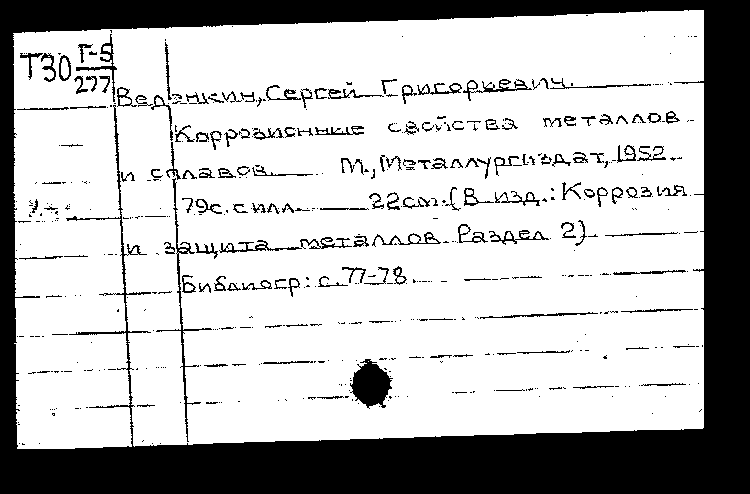 Т30 Г-5
277
Веденкин, Сергей Григорьевич.
Коррозионные свойства металлов
и сплавов. М., Металлургиздат, 1952.
79с. силл. 22см. (В изд.: Коррозия
и защита металлов. Раздел 2).
Библиогр: с. 77-78.